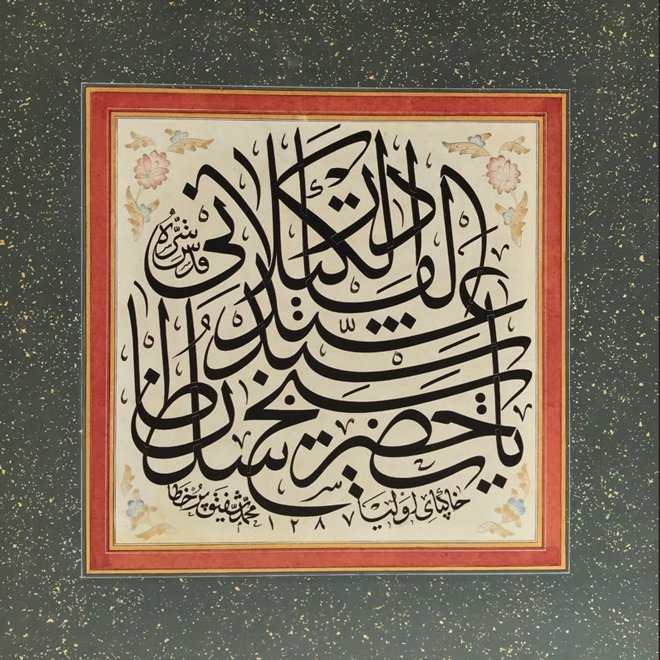 يا حضرت سلطان
شيخ سيد
عبد القادر الكيلانى
قدس سره
خاكپاى اوليا
محمد شفيق پر خطا
١٢٨٧